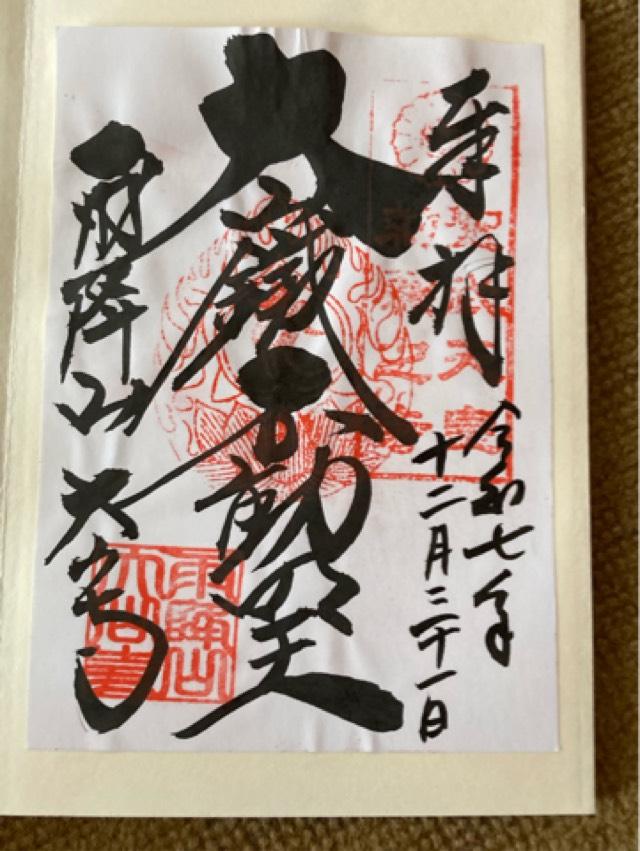 奉拝
令和七年
十二月三十一日
大鐵不動王
雨降山大山寺
雨降山
大山寺